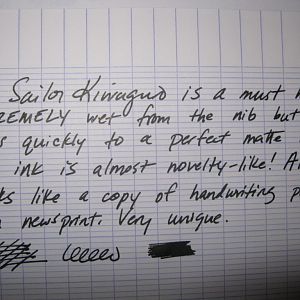 Sailor Kiwaguro is a must
REMELY wet from the nib but
s quickly to a perfect matte
ink is almost novelty-like! A
ks like a copy of handwriting p
newsprint. Very unique.